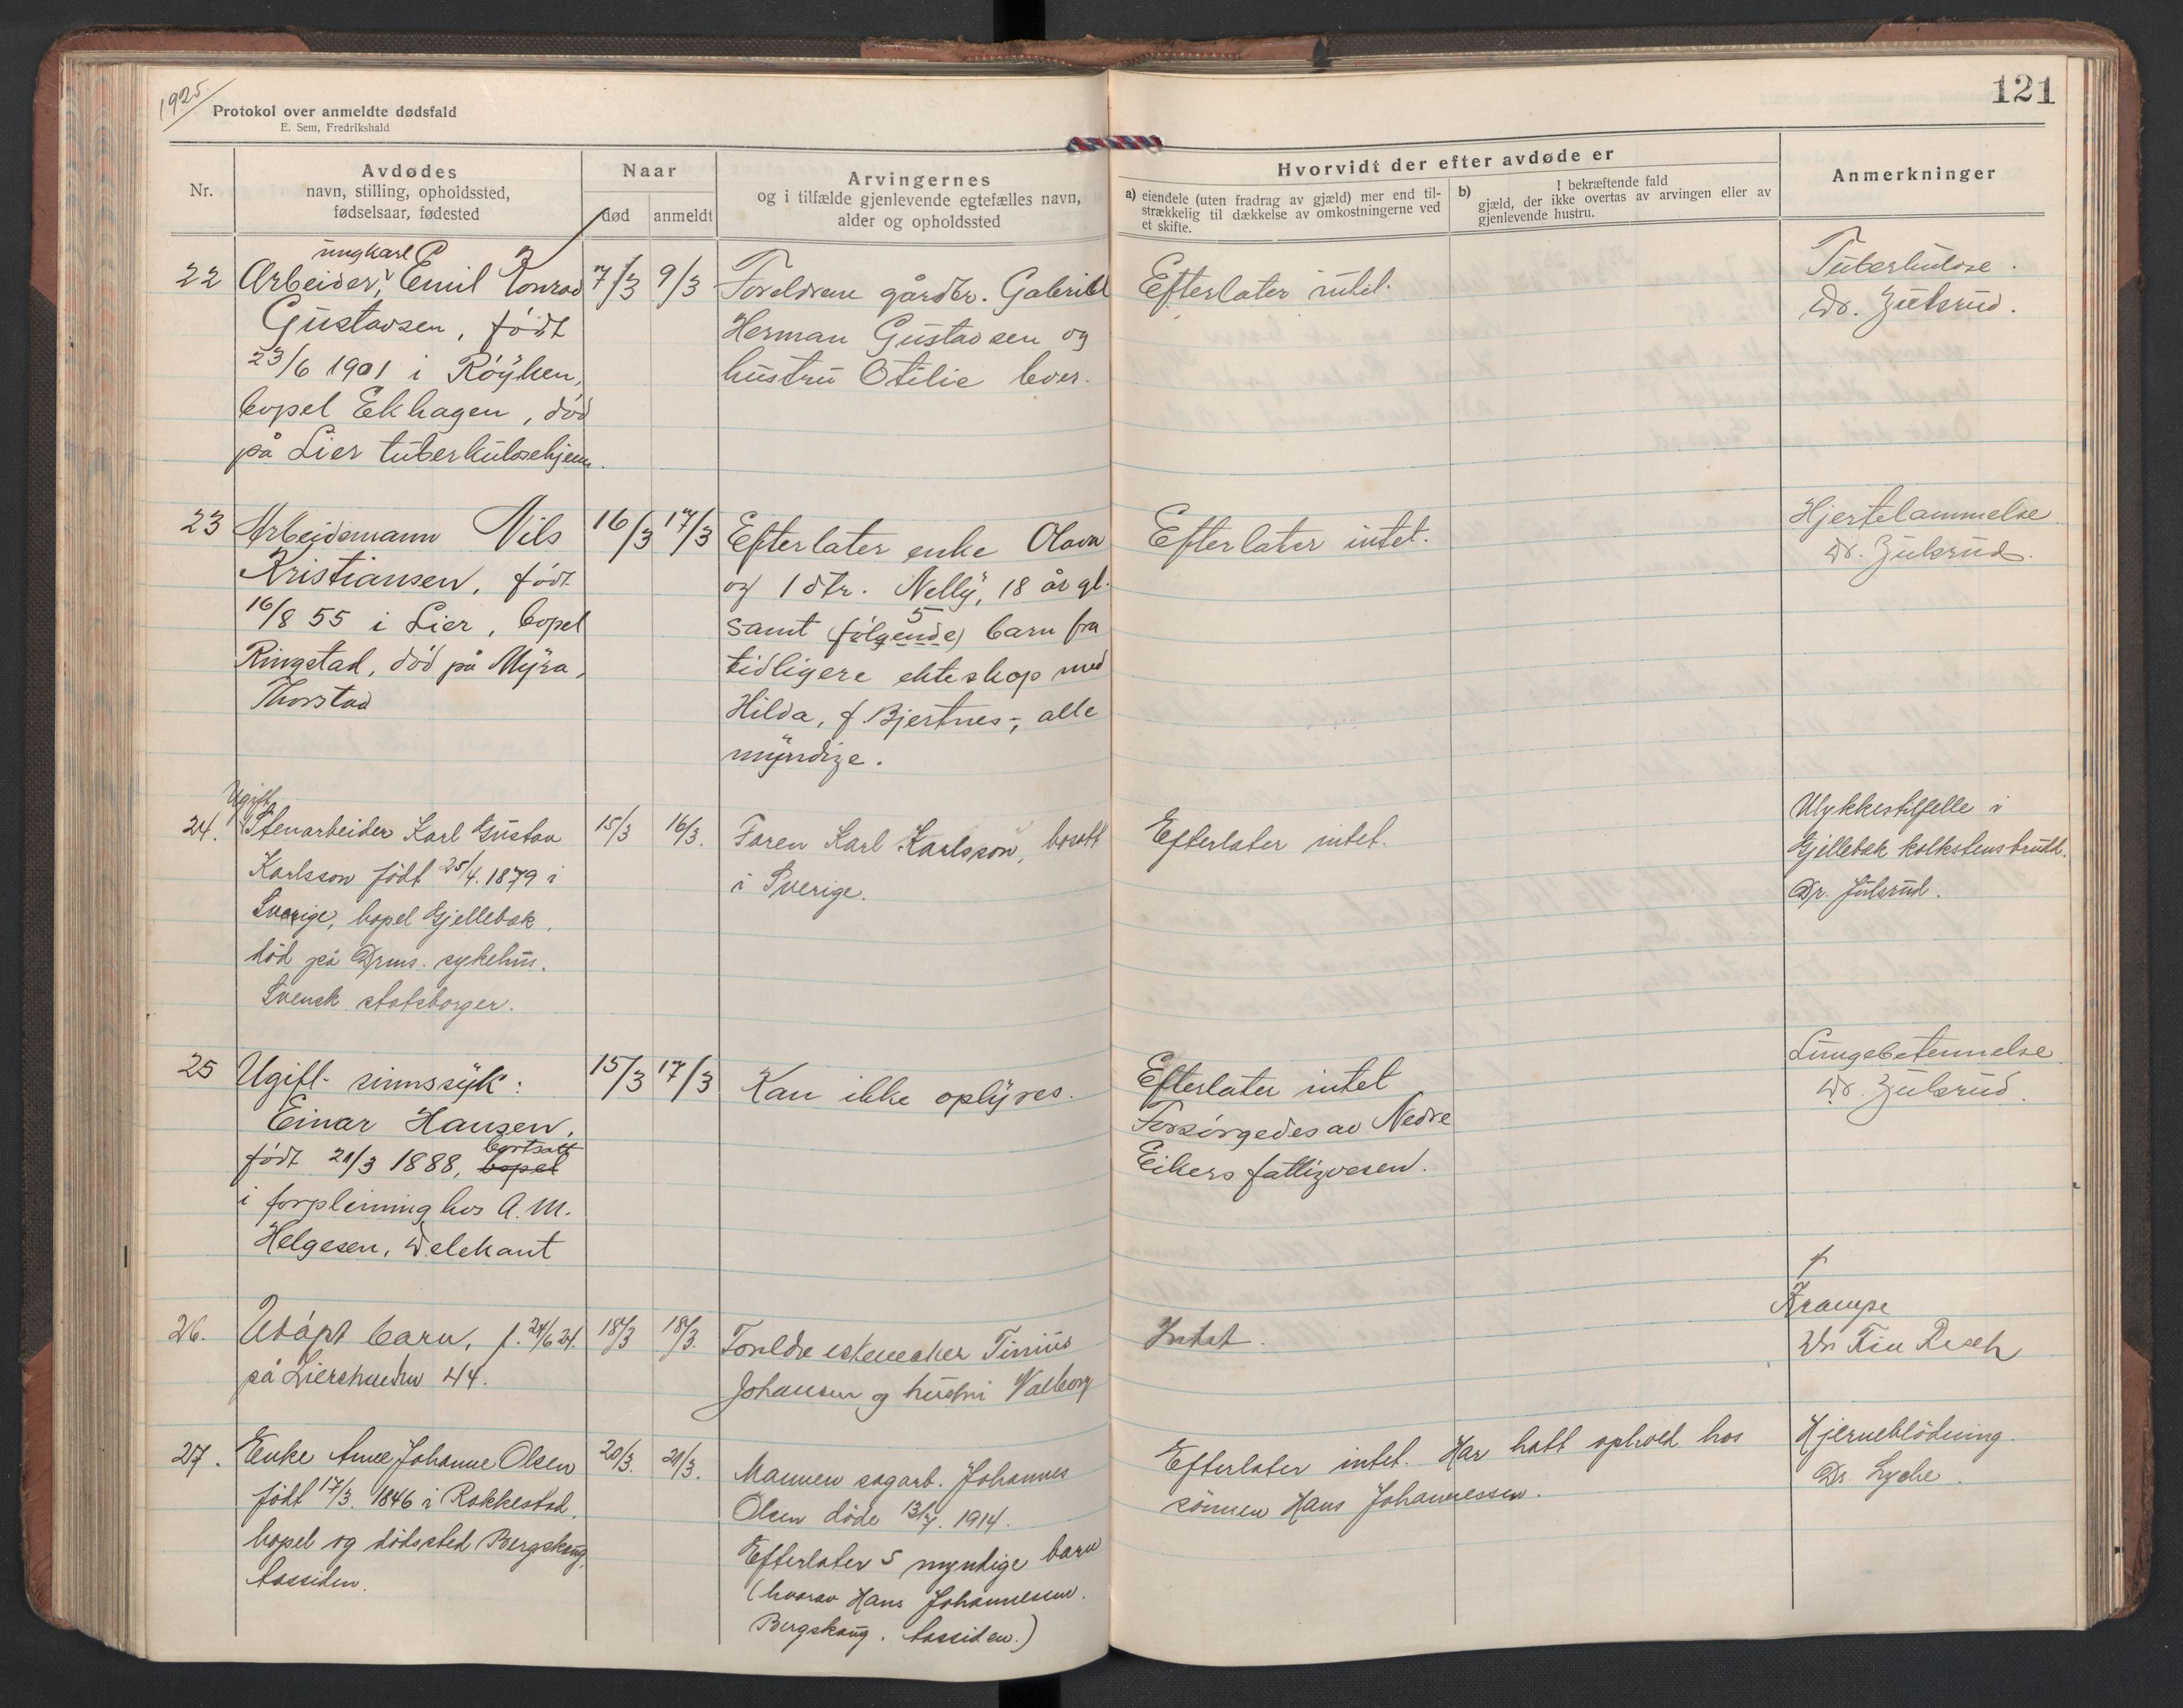 1925
Protokol over anmeldte dødsfald
E. Sem, Fredrikshald
121
Nr.
Avdødes
navn, stilling, opholdssted,
fødselsaar, fødested
Naar
død
anmeldt
Arvingernes
og i tilfælde gjenlevende egtefælles navn,
alder og opholdssted
Hvorvidt der efter avdøde er
a) eiendele (uten fradrag av gjæld) mer end til-
strækkelig til dækkelse av omkostningerne ved
et skifte.
b) I bekræftende fald
gjæld, der ikke overtas av arvingen eller av
gjenlevende hustru.
Anmerkninger
22
ungkarl
Arbeider, Emil Konrad
Gustavsen, født
23/6 1901 i Röyken,
bopel Ekhagen, død
på Lier tuberkulosehjem.
7/3
9/3
Foreldrene gårdbr. Gabriel
Herman Gustavsen og
hustru Otilie lever.
Efterlater intet.
Tuberkulose.
Dr. Julsrud.
23
Arbeidsmann Nils
Kristiansen, født
16/8 55 i Lier, bopel
Ringstad, død på Myra,
Thorstad
16/3
17/3
Efterlater enke Olava
og 1 dtr. Nelly, 18 år gl.
5
samt (følgende) barn fra
tidligere ekteskap med
Hilda, f Bjertnes -, alle
myndige.
Efterlater intet.
Hjertelammelse.
Dr. Julsrud.
24.
Ugift
Stenarbeider Karl Gustav
Karlsson født 25/4. 1879 i
Sverige, bopel Gjellebæk,
död på Drms. sykehus.
Svensk statsborger.
15/3
16/3.
Faren Karl Karlsson, bosatt
i Sverige.
Efterlater intet.
Ulykkestilfelle i
Gjellebæk kalkstensbrudd.
Dr. Julsrud.
25
Ugift sinnssyk:
Einar Hansen,
født 21/3 1888, bopel bortsatt
i forpleining hos A. M.
Helgesen, Delekant
15/3
17/3
Kan ikke oplyses.
Efterlater intet
Forsörgedes av Nedre
Eikers fattigvesen.
Lungebetennelse.
Dr. Julsrud.
26.
Udöpt barn, f. 24/6 24.
på Lierskuen 44.
18/3
18/3.
Foreldre Tinius
Johansen og hustru Valborg
Intet.
Krampe
Dr
27.
Enke Anne Johanne Olsen
født 17/3. 1846 i Rakkestad,
bopel og dödssted Bergskaug,
Aassiden.
20/3.
21/3.
Mannen sagarb. Johannes
Olsen döde 13/7. 1914.
Efterlater 5 myndige barn
(hvorav Hans Johannessen.
Bergskaug. Aassiden.)
Efterlater intet. Har hatt ophold hos
sönnen Hans Johannessen.
Hjerneblödning.
Dr. Lyche.